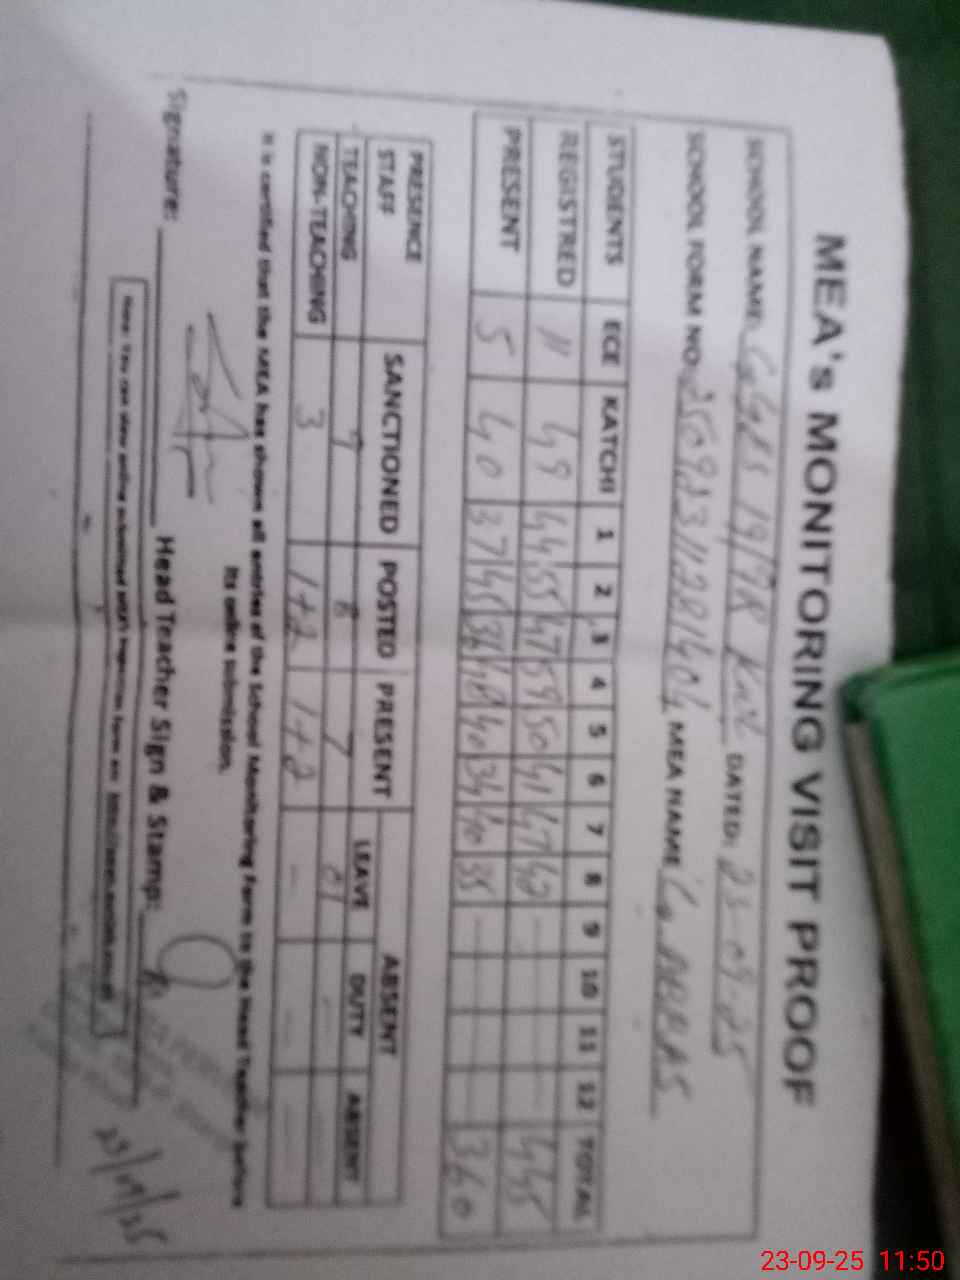 MEA's MONITORING VISIT PROOF
SCHOOL NAME: DATED: 23-09-25
SCHOOL FORM NO. MEA NAME
STUDENTS ECE KATCHI 1 2 3 4 5 6 7 8 9 10 11 12 TOTAL
REGISTRED 11 49 44 55 47 59 50 41 47 - - - - 445
PRESENT 5 40 37 45 48 40 34 40 35 - - - - 360
PRESENCE SANCTIONED POSTED PRESENT ABSENT
STAFF LEAVE DUTY ABSENT
TEACHING 7 8 7 01 - -
NON-TEACHING 3 1+2 1+2 - - -
It is certified that the MEA has shown all entries of the School Monitoring Form to the Head Teacher before
its online submission.
Signature: Head Teacher Sign & Stamp:
Note: You can view online submitted
23/09/25
23-09-25 11:50